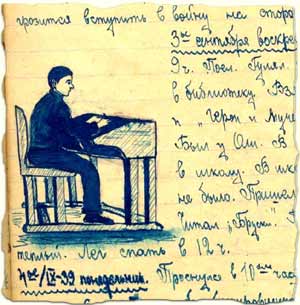 грозится вступить в войну на сторо
3го сентября воскре
9 ч. Посл. Гулял.
в библиотеку Вз
п „Герои и муче
Был у Ош. В
в школу. В шк
не было. Пришел
Читал „Бруски".
теплый. Лег спать в 12 ч.
4ое/IX-39 понедельник. Проснулся в 10 час